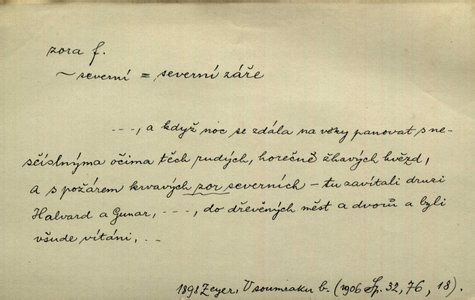 zora f.
~ severní = severní záře
---, a když noc se zdála na vozy panovat s ne-
sčíslnýma očima těch rudých, horečně žhavých hvězd,
a s požárem krvavých zor severních – tu zavítali druzi
Halvard a Gunar, ---, do dřevěných měst a dvorů a byli
všude vítáni, --
1898 Zeyer, V soumraku b. (1906 Sp. 32, 76, 18).